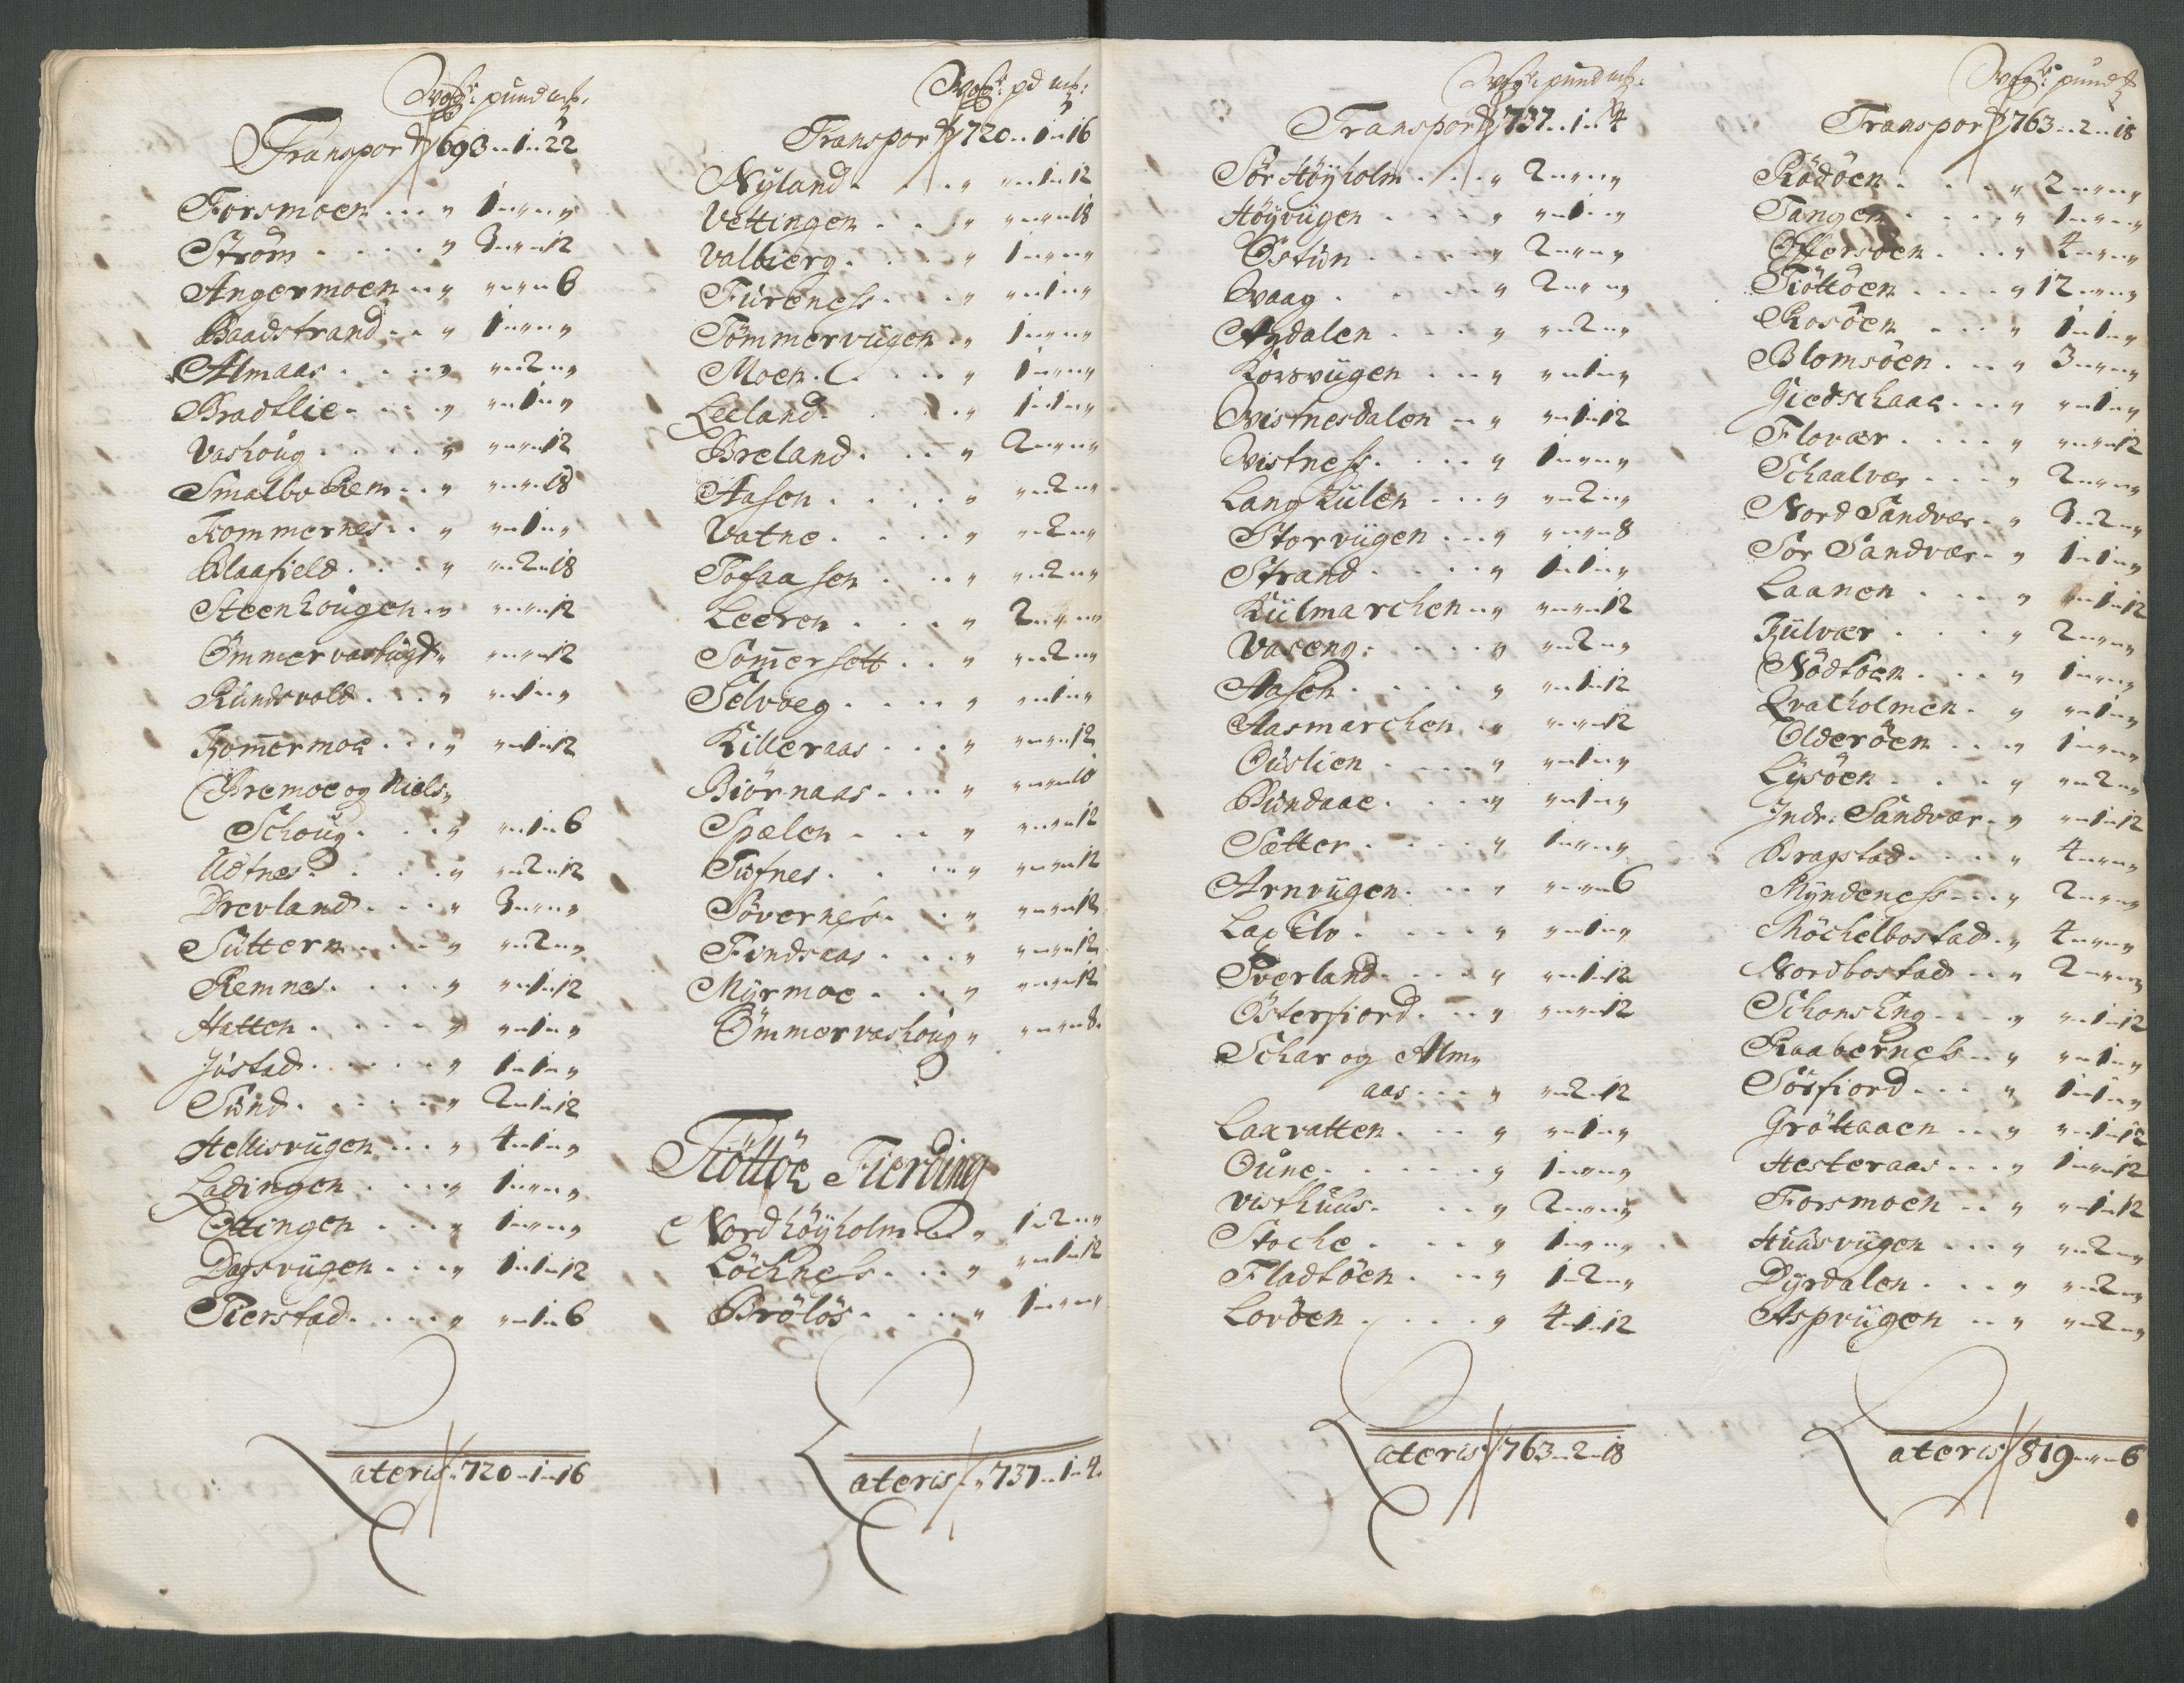 Wog: pund mk:
Transport 693 „ 1 „ 22
Forsmoen . . . „ 1 „ „ „ „
Ström . . . . „ 3 „ „ „ 12
Angermoen . . „ „ „ „ „ 6
Baadstrand . . „ 1 „ „ „ „
Almaas . . . . „ „ „ 2 „ „
Bradtlie . . . „ „ „ 1 „ „
Vashoug . . . . „ „ „ „ „ 12
Smalbochem . . „ „ „ „ „ 18
Kommernes . . „ „ „ 1 „ „
Blaafield . . . „ „ „ 2 „ 18
Steenhougen . „ „ „ „ „ 12
Ömmervasbugt „ „ „ „ „ 12
Rundsvold . . . „ „ „ 1 „ „
Kom̅ermoe . . . „ „ „ 1 „ 12
Bremoe og Niels „
Schoug . . . „ „ „ 1 „ 6
Udtnes . . . . „ „ „ 2 „ 12
Drevland . . . „ 3 „ „ „ „
Suttern . . . „ „ „ 2 „ „
Remnes . . . . „ „ „ 1 „ 12
Hatten . . . . „ „ „ 1 „ „
Justad . . . . . „ 1 „ 1 „ „
Sund . . . . . „ 2 „ 1 „ 12
Hellisvügen . . . „ 4 „ 1 „ „
Ladingen . . . . „ 1 „ „ „ „
Ottingen . . . „ 1 „ „ „ „
Dagsvügen . . . „ 1 „ 1 „ 12
Tierstad . . . . „ „ „ 1 „ 6
Lateris „ 720 „ 1 „ 16
Wog: pd mk:
Transport 720 „ 1 „ 16
Nÿland . . . . „ „ „ 1 „ 12
Vettingen . . . „ „ „ „ „ 18
Valbierg . . . . „ 1 „ „ „ „
Fureness . . . . „ „ „ 1 „ „
Tömmervügen . „ 1 „ „ „ „
Moen . . . . . „ 1 „ „ „ „
Leeland . . . . „ 1 „ 1 „ „
Breland . . . „ 2 „ „ „ „
Aasen . . . . . „ „ „ 2 „ „
Vatne . . . . . „ „ „ 2 „ „
Tofaasen . . . „ „ „ 2 „ „
Leeren . . . . „ 2 „ „ „ „
Som̅ersett . . . „ „ „ 2 „ „
Selvoeg . . . . „ „ „ 1 „ „
Killeraas . . . „ „ „ „ „ 12
Biörnaas . . . „ „ „ „ „ 18
Spælen . . . . „ „ „ „ „ 12
Tufnes . . . . „ „ „ „ „ 12
Sövernes . . . „ „ „ „ „ 12
Findsaas . . . „ „ „ „ „ 12
Mÿrmoe . . . „ „ „ „ „ 12
Ömmervashoug „ „ „ „ „ 8.
Tiöttöe Fierding
Nordhöÿholm . . „ 1 „ 2 „ „
Löchness . . . „ „ „ 1 „ 12
Brölös . . . . „ 1 „ „ „ „
Lateris „ 737 „ 1 „ 4.
Wog: pund mk:
Transport 737 „ 1 „ 4
Sör Höÿholm . . . „ 2 „ „ „ „
Höÿvügen . . . . „ „ „ 1 „ „
Östun . . . . . „ 2 „ „ „ „
Waag . . . . . „ 2 „ „ „ „
Aÿdalen . . . „ „ „ 2 „ „
Korsvügen . . . „ „ „ 1 „ „
Wistnesdalen . . „ „ „ 1 „ 12
Wistness . . . . „ 1 „ „ „ „
Langhülen . . . „ „ „ 2 „ „
Storvügen . . . „ „ „ „ „ 8
Strand . . . . „ 1 „ 1 „ „
Külmarchen . . „ „ „ „ „ 12
Vaseng . . . . . „ „ „ 2 „ „
Aasen . . . . . „ „ „ 1 „ 12
Aasmarchen . „ „ „ „ „ 12
Ouslien . . . . „ „ „ 1 „ „
Bundaae . . . „ „ „ 1 „ „
Sætter . . . . „ 1 „ „ „ „
Arnvügen . . . „ „ „ „ „ 6
Lax Elv . . . . „ „ „ 1 „ „
Sverland . . . . „ „ „ 1 „ 12
Österfiord . . . „ „ „ „ „ 12
Schar og Alm „
aas . . . „ „ „ 2 „ 12
Laxvatten . . . „ „ „ 1 „ „
Oune . . . . . „ 1 „ „ „ „
Visthuus . . . „ 2 „ „ „ „
Stoche . . . . „ 1 „ „ „ „
Fladtöen . . . „ 1 „ 2 „ „
Lovöen . . . . „ 4 „ 1 „ 12
Lateris 763 „ 2 „ 18
Wog: pund
Transport 763 „ 2 „ 18
Rödöen . . . . „ 2 „ „ „ „
Tangen . . . . „ 1 „ „ „ „
Offersöen . . . „ 4 „ „ „ „
Tiöttöen . . . . „ 12 „ „ „ „
Rosöen . . . . „ 1 „ 1 „ „
Blomsöen . . . „ 3 „ „ „ „
Giedschaae . . . „ „ „ 1 „ „
Flovær . . . . „ „ „ „ „ 12
Schaalvær . . . „ 2 „ „ „ „
Nord Sandvær . „ 3 „ 2 „ „
Sör Sandvær . „ 1 „ 1 „ „
Laanen . . . . „ „ „ 1 „ 12
Hulvær . . . . „ 2 „ „ „ „
Nödtöen . . . „ 1 „ „ „ „
Qvalholmen . „ „ „ 1 „ „
Olderöen . . . „ 1 „ „ „ „
Lÿsöen . . . . „ „ „ 2 „ „
Indr: Sandvær . „ „ „ 1 „ 12
Bragstad . . . . „ 4 „ „ „ „
Mÿndeness . . . „ 2 „ „ „ „
Möchelbostad . „ 4 „ „ „ „
Nordbostad . . . „ 2 „ „ „ „
Schonseng . . . „ „ „ 1 „ 12
Raaberness . . „ „ „ 1 „ „
Sörfiord . . . . „ 1 „ 1 „ „
Gröttaaen . . . „ „ „ 1 „ 12
Hesteraas . . . „ 1 „ „ „ 12
Forsmoen . . . „ „ „ 1 „ 12
Huusvügen . . . „ „ „ 2 „ „
Dÿrdalen . . . „ „ „ 2 „ „
Aspvügen . . . „ „ „ 2 „ „
Lateris 819 „ „ „ 6